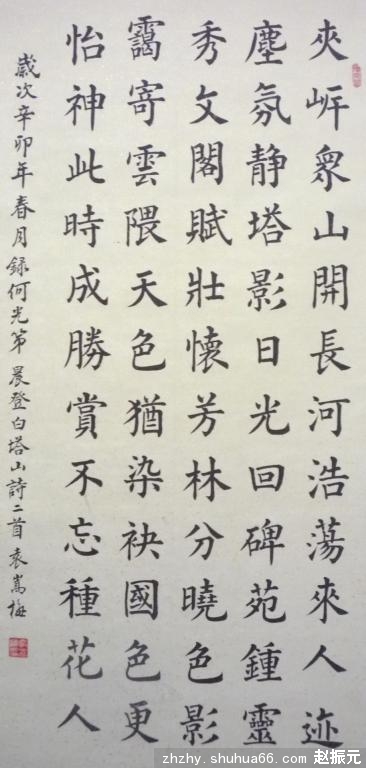 夾岸衆山開長河浩蕩來人迹
塵氛静塔影日光回碑苑鍾靈
秀文閣賦壯懷芳林分曉色影
靄寄雲隈天色猶染袂國色更
怡神此時成勝賞不忘種花人
歲次辛卯年春月録何光第晨登白塔山詩二首袁嵩梅
zhzhy.shuhua66.com 赵振元